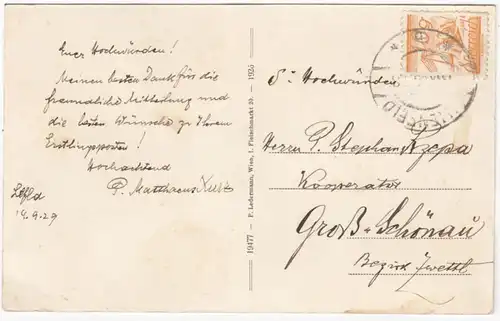 Euer Hochwürden!
Meinen besten Dank für die
freundliche Mitteilung und
die besten Wünsche zu Ihrem
Erstlingsposten!
Hochachtend
P. Matthaeus
14.9.29
19477 — P. Ledermann, Wien, I. Fleischmarkt 20. — 1926
Sr Hochwürden
Herrn P. Stephan Szepa
Kooperator
Groß-Schönau
Bezirk Zwettl